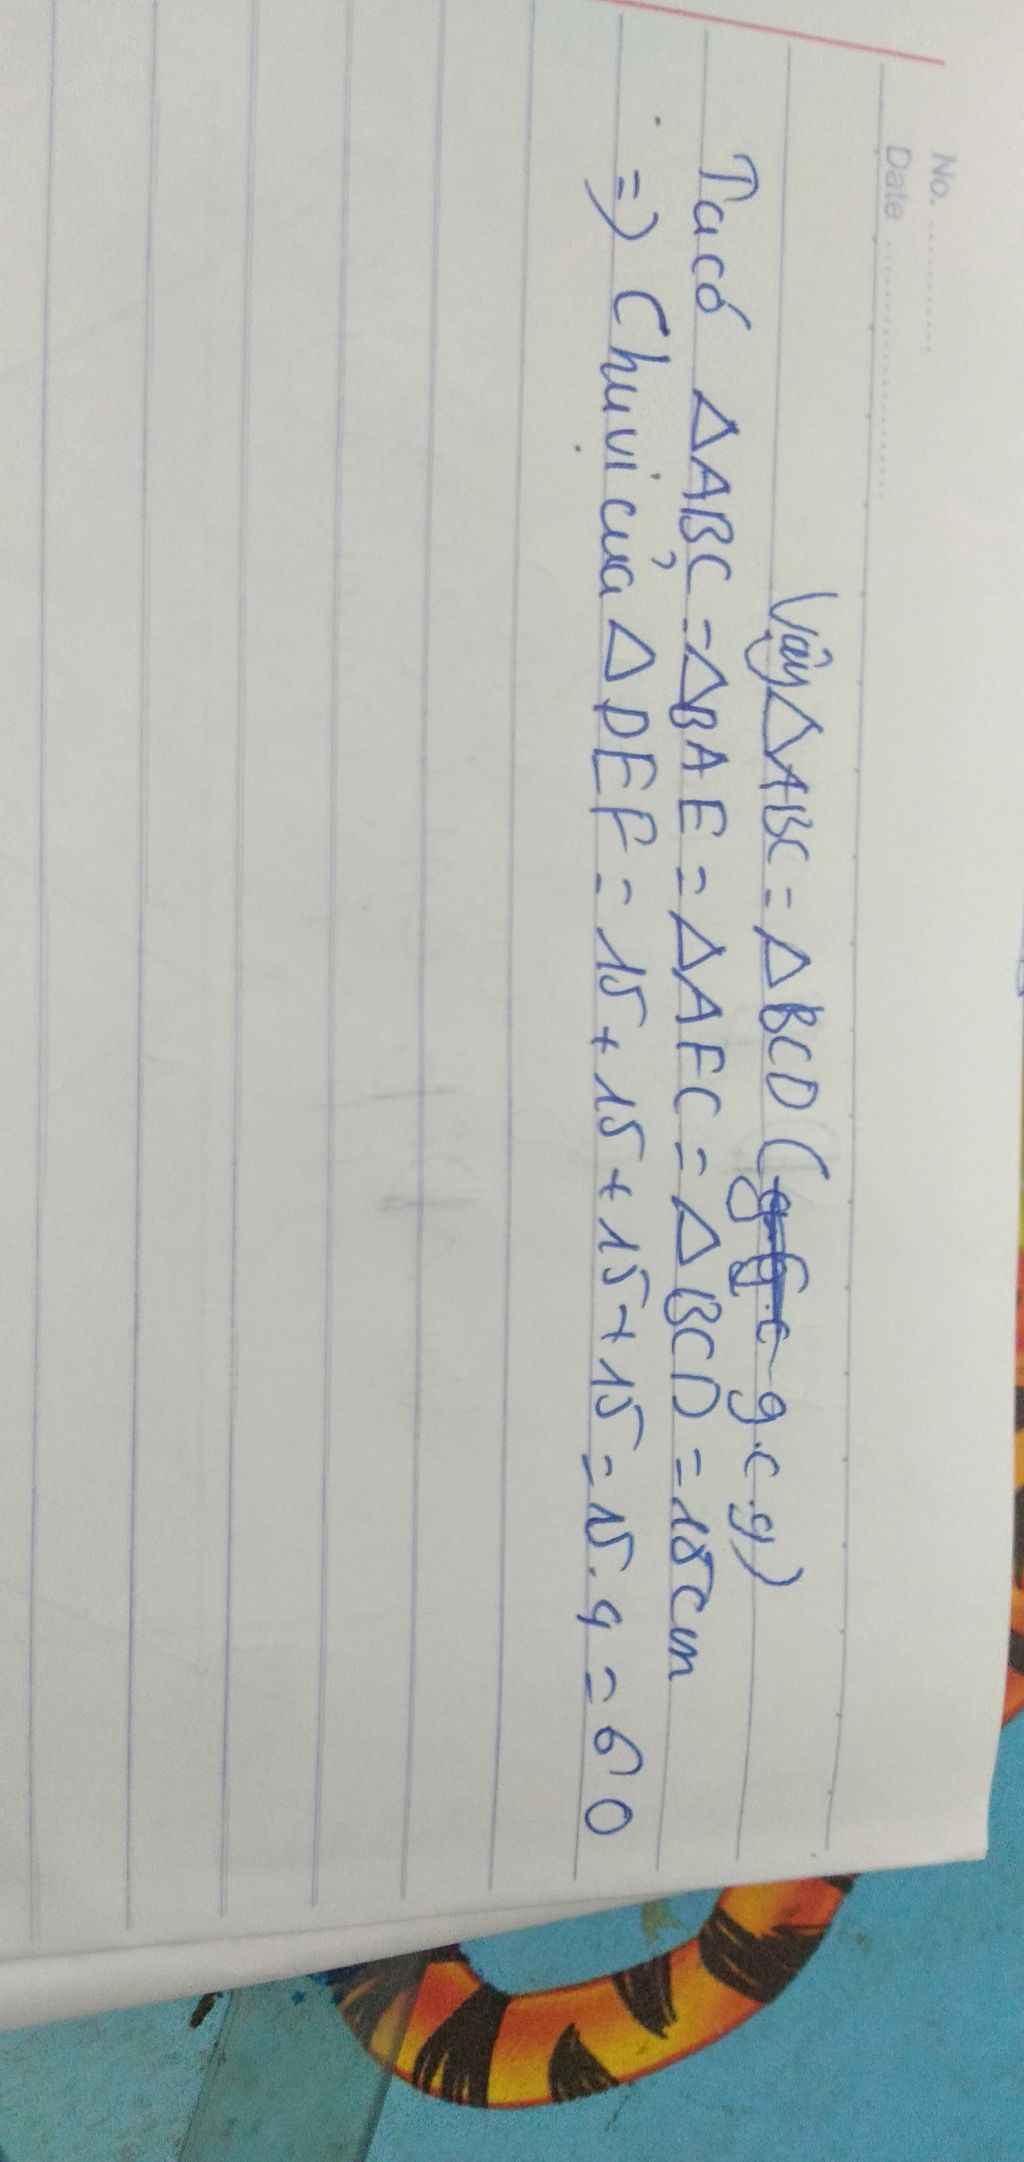 No. ............
Date ..................
Vậy △ABC = △BCD ( g.c.g)
Ta có △ABC = △BAE = △AFC = △BCD = 15cm
=) Chu vi của △DEF = 15 + 15 + 15 + 15 = 15 . 4 = 60